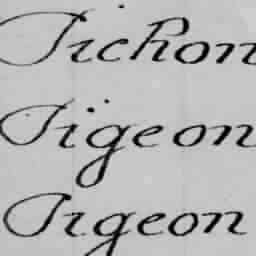 Pichon
Pigeon
Pigeon